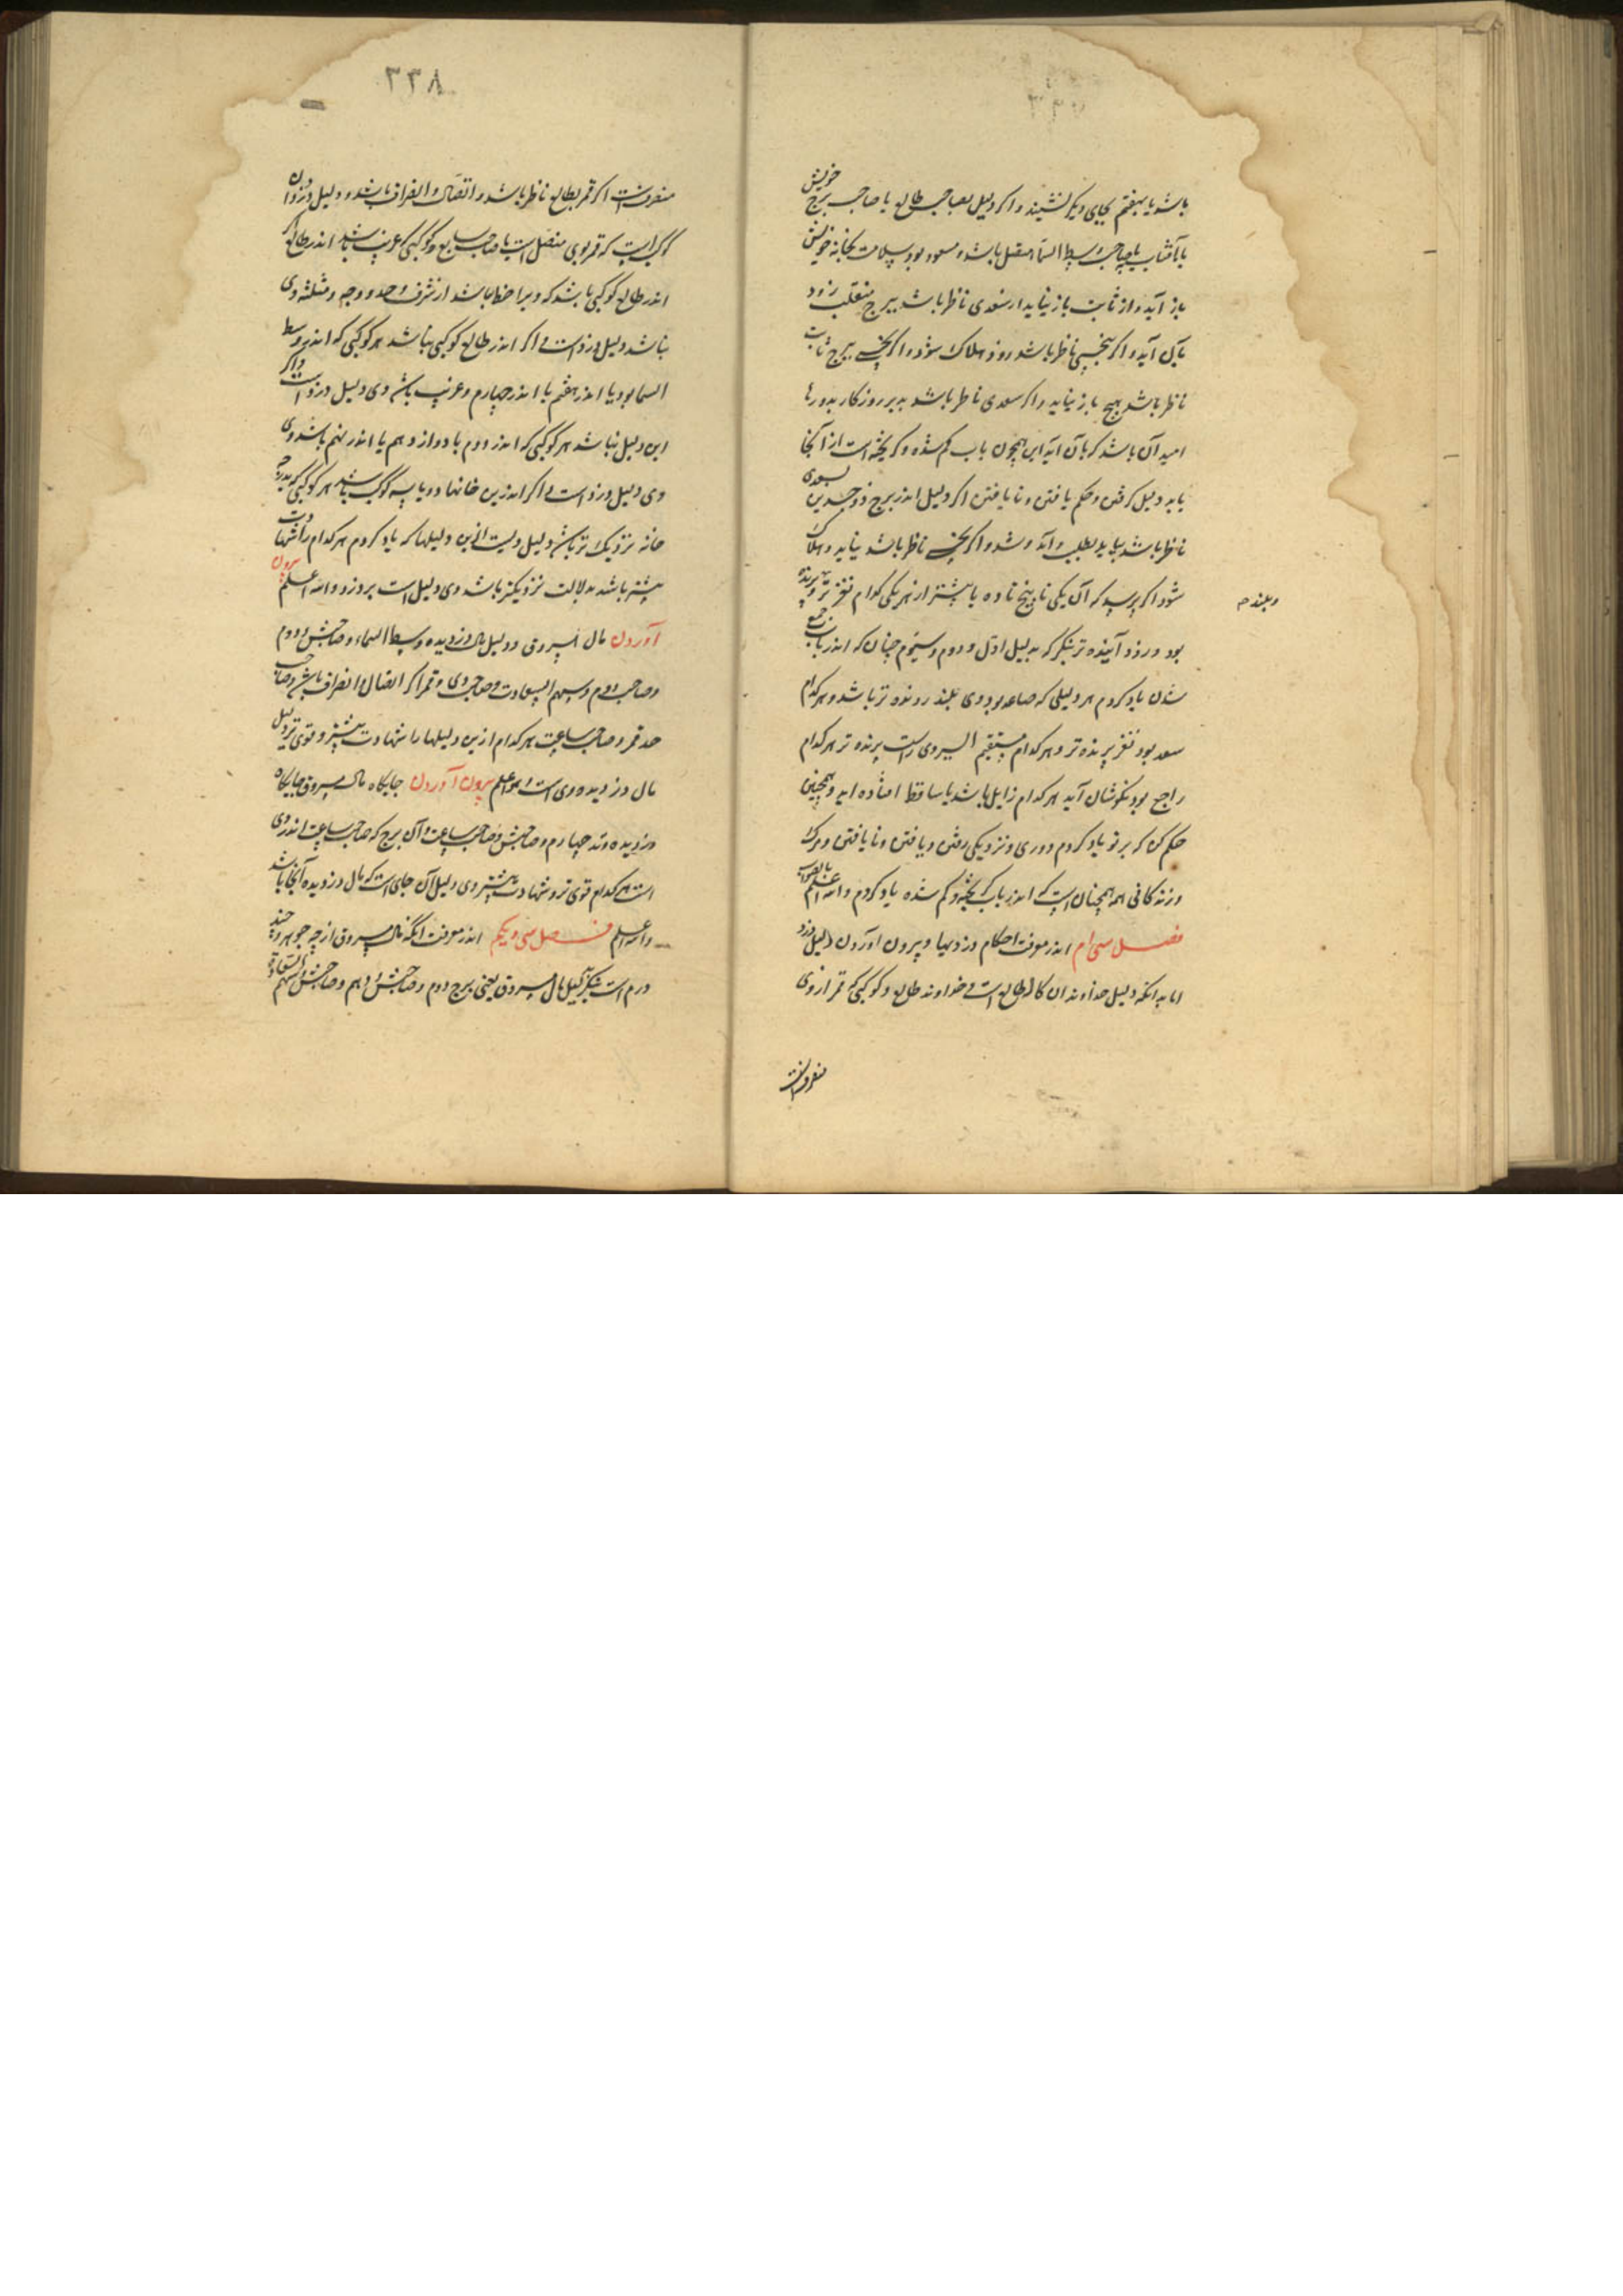 باشد یا بهفتم بجای دیگر نشیند و اگر دلیل بصاحب طالع یا صاحب برج خویش
یا بآفتاب یا صاحب وسط السما متصل باشد و مسعود بود بسلامت بخانه خویش
باز آید و از ثابت باز نیاید ار سعدی ناظر باشد ببرج منقلب زود
باز آید و اگر نحسی ناظر باشد زود هلاک شود و اگر نحسی ببرج ثابت
ناظر باشد هیچ باز نیاید و اگر سعدی ناظر باشد بدیر روزگار بدو رها
امید آن باشد که باز آید این همچون باب گم شده و گریخته است از آنجا
باید دلیل گرفتن و حکم یافتن و نا یافتن اگر دلیل اندر برج ذو جسدین بسعدی
ناظر باشد بیاید بطلب و آمد و شد و اگر نحسی ناظر باشد نیاید و هلاک
شود اگر پرسید که آن یکی تا پنج تا ده یا بیشتر از هر یکی کدام نغز تر و پرنده تر
وبلند م
بود و زود آینده تر بنگر که بدلیل اول و دوم و سیوم چنان که اندر باب جمع
شدن یاد کردم هر دلیلی که صاعد بود وی بلند رونده تر باشد و هر کدام
سعد بود نغز پرنده تر و هر کدام مستقیم السیر وی راست پرنده تر هر کدام
راجع بود نگوشان آید هر کدام زایل باشد یا ساقط افتاده اید و همچنین
حکم کن که بر تو یاد کردم دوری و نزدیکی رفتن و یافتن و نا یافتن و مرگ
و زندگانی همه همچنان است که اندر باب گریخته و گم شده یاد کردم والله اعلم بالصواب
فصل سی ام اندر معرفت احکام دزدیها و بیرون آوردن دلیل دزد
اما بدانکه دلیل خداوندان کالا طالع است و خداوند طالع و کوکبی که قمر از وی
منصرفست
۳۳۸
منصرفست اگر قمر بطالع ناظر باشد و اتصال و انصراف باشد و دلیل دزد آن
کوکب است که قمر بوی متصل است یا صاحب سابع و کوکبی غریب باشد اندر طالع اگر
اندر طالع کوکبی باشد که ویرا حظ باشد از شرف و حد و وجه و مثلثه وی
نباشد دلیل دزد است و اگر اندر طالع کوکبی نباشد هر کوکبی که اندر وسط
السما بود یا اندر هفتم یا اندر چهارم و غریب باشد وی دلیل دزد است و اگر
این دلیل نباشد هر کوکبی که اندر دوم یا دوازدهم یا اندر نهم باشد وی
وی دلیل دزد است و اگر اندرین خانها دو یا سه کوکب باشد هر کوکبی که بدرجه
خانه نزدیک تر باشد دلیل ویست ازین دلیلها که یاد کردم هر کدام را شهادت
بیشتر باشد بدلالت نزدیکتر باشد وی دلیل است بر دزد والله اعلم بیرون
آوردن مال مسروق و دلیل مال دزدیده وسط السماء و صاحبش و دوم
و صاحب دوم و سهم السعادت و صاحب وی و قمر اگر اتصال و انصراف باشد و صاحب
حد قمر و صاحب ساعت هر کدام ازین دلیلها را شهادت بیشتر و قوی تر دلیل
مال دزدیده وی است والله اعلم بیرون آوردن جایگاه مال مسروق جایگاه
دزدیده وتد چهارم و صاحبش و صاحب ساعت و آن برج که صاحب ساعت اندر وی
است هر کدام قوی تر و شهادت بیشتر وی دلیل آن جای است که مال دزدیده آنجا باشد
والله اعلم فصل سی و یکم اندر معرفت آنکه مال مسروق از چه جوهر و چند
درم است بنگر بدلیل مال مسروق یعنی برج دوم و صاحبش و دهم و صاحبش و سهم السعادة